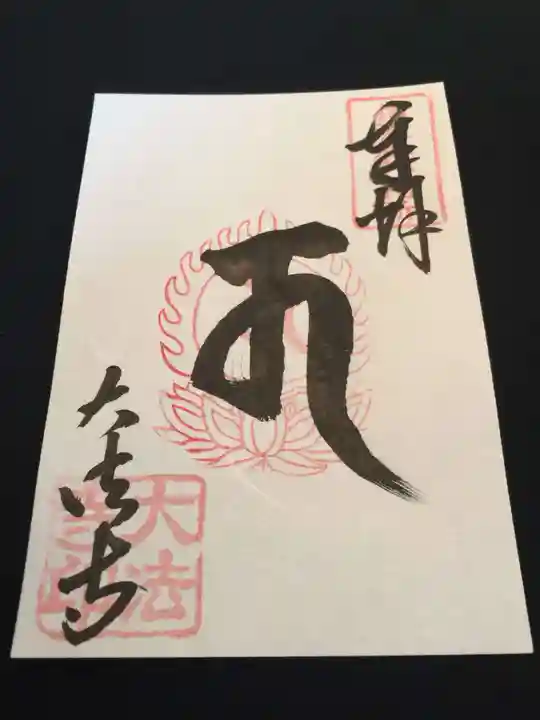 奉拝
大法寺
大法
寺印